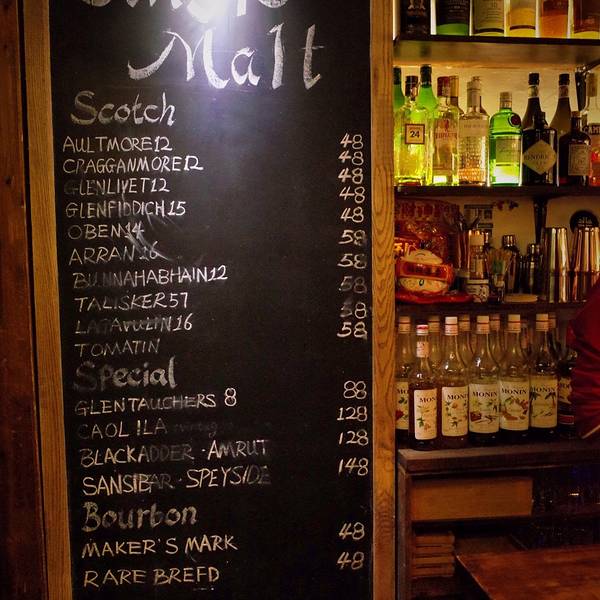 Malt
Scotch
AULTMORE12 48
CRAGGANMORE12 48
GLENLIVET12 48
GLENFIDDICH15 48
OBEN14 48
ARRAN 16 58
BUNNAHABHAIN12 58
TALISKER57 58
LAGAVULIN16 58
TOMATIN 58
Special
GLENTAUCHERS 8 88
CAOL ILA 128
BLACKADDER · AMRUT 128
SANSIBAR · SPEYSIDE 148
Bourbon
MAKER'S MARK 48
RARE BREED 48
24
HENDRICK'S
MONIN
MONIN
MONIN
MONIN
MONIN